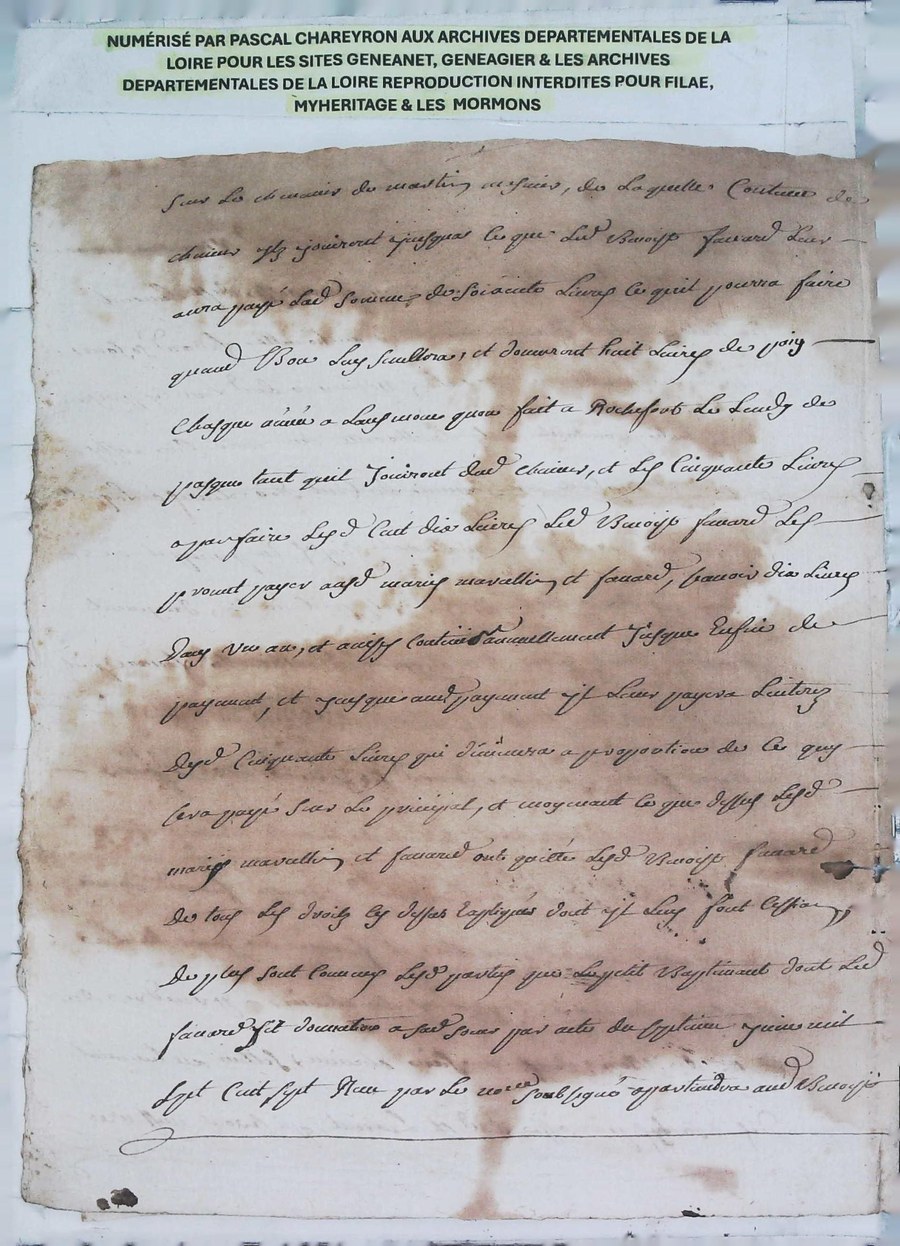 NUMÉRISÉ PAR PASCAL CHAREYRON AUX ARCHIVES DEPARTEMENTALES DE LA
LOIRE POUR LES SITES GENEANET, GENEAGIER & LES ARCHIVES
DEPARTEMENTALES DE LA LOIRE REPRODUCTION INTERDITES POUR FILAE,
MYHERITAGE & LES MORMONS
Sur le de de laquelle Couture de
jouiront jusques ce que led Benoist fauard leur
aura payé lad somme de soixante livres ce quil pourra faire
quand Bon luy semblera, et donneront huit livres de
Chasque année a quon fait a Rochefort le Lundy de
pasque tant quil Jouiront dud et les Cinquante livres
a parfaire lesd Cent dix livres led Benoist fauard les
promet payer ausd mariés maralliin et fauard, scauoir dix livres
dans un an, et ainsy annuellement Jusque Enfin de
payement, et jusques aud payement il leur payera linterez
desd Cinquante livres qui diminuera a proportion de ce quy
sera payé sur le principal, et moyenant ce que dessus lesd
mariés et fauard ont quitté led Benoist fauard
de tous les droits cy dessus Expliqués dont il luy font Cession,
de plus sont Convenus lesd parties que le petit Baptiment dont led
fauard fit donnation a sad soeur par acte du septieme mil
sept Cent sept par le no.re soubsigné appartiendra aud Benoist